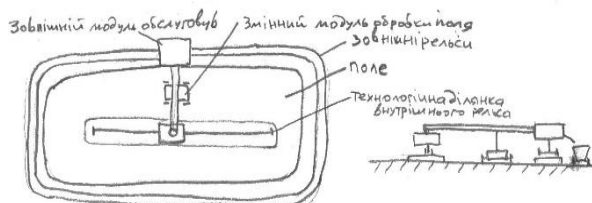 Зовнішній модуль обслуговув
Змінний модуль обробки поля
Зовнішні рельси
Поле
Технологічна ділянка
внутрішнього рельса